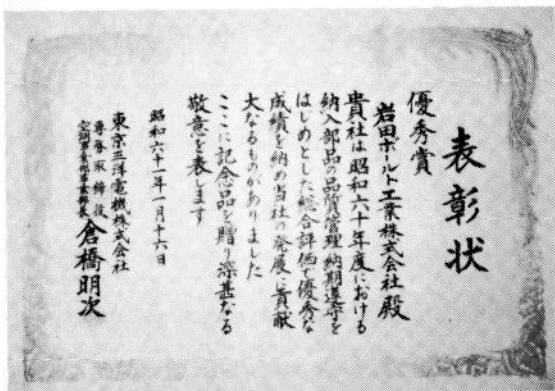 表彰状
優秀賞
岩田ボールト工業株式会社殿
貴社は昭和六十年度における
納入部品の品質管理納期遵守を
はじめとした総合評価で優秀な
成績を納め当社の発展に貢献
大なるものがありました
ここに記念品を贈り深甚なる
敬意を表します
昭和六十一年一月十六日
東京三洋電機株式会社
専務取締役
倉橋明次